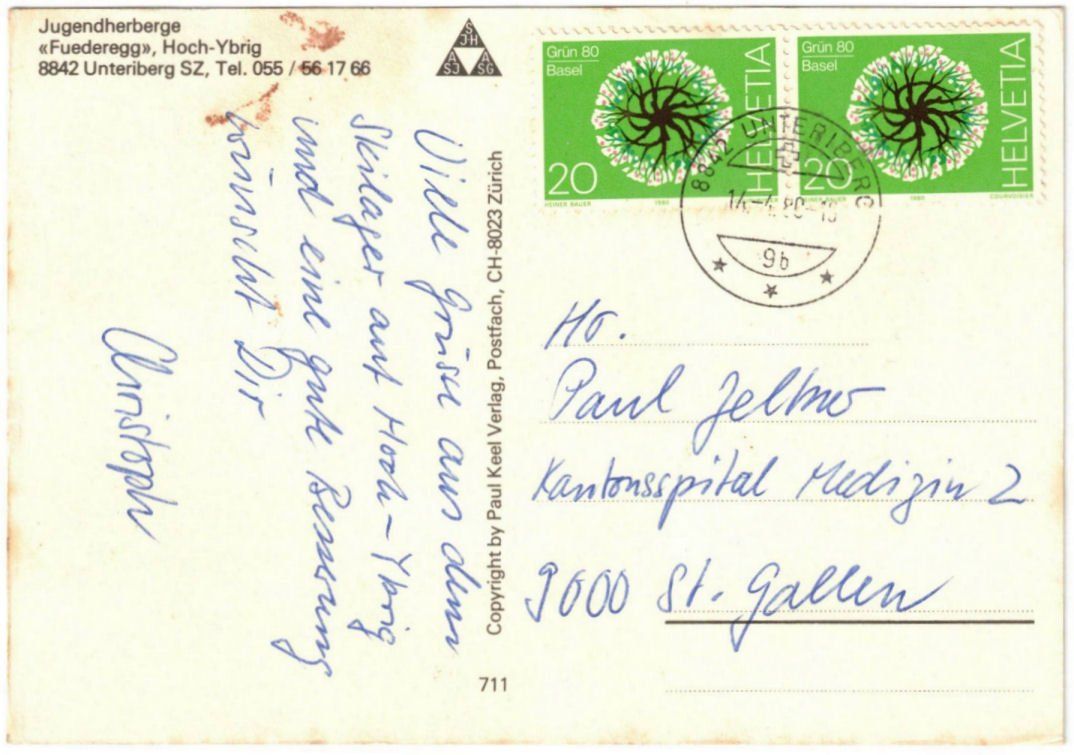 Jugendherberge
«Fuederegg», Hoch-Ybrig
8842 Unteriberg SZ, Tel. 055 / 56 17 66
S
JH
A
SJ
A
SG
Grün 80
Basel
20
HELVETIA
HEINER BAUER
1980
Grün 80
Basel
20
HELVETIA
HEINER BAUER
1980
COURVOISIER
8842 UNTERIBERG
14.-4.80-
9b
Viele Grüsse aus dem
Skilager auf Hoch-Ybrig
und eine gute Besserung
wünscht Dir
Christoph
Copyright by Paul Keel Verlag, Postfach, CH-8023 Zürich
711
Hr.
Paul
Kantonsspital Medizin 2
9000 St. Gallen